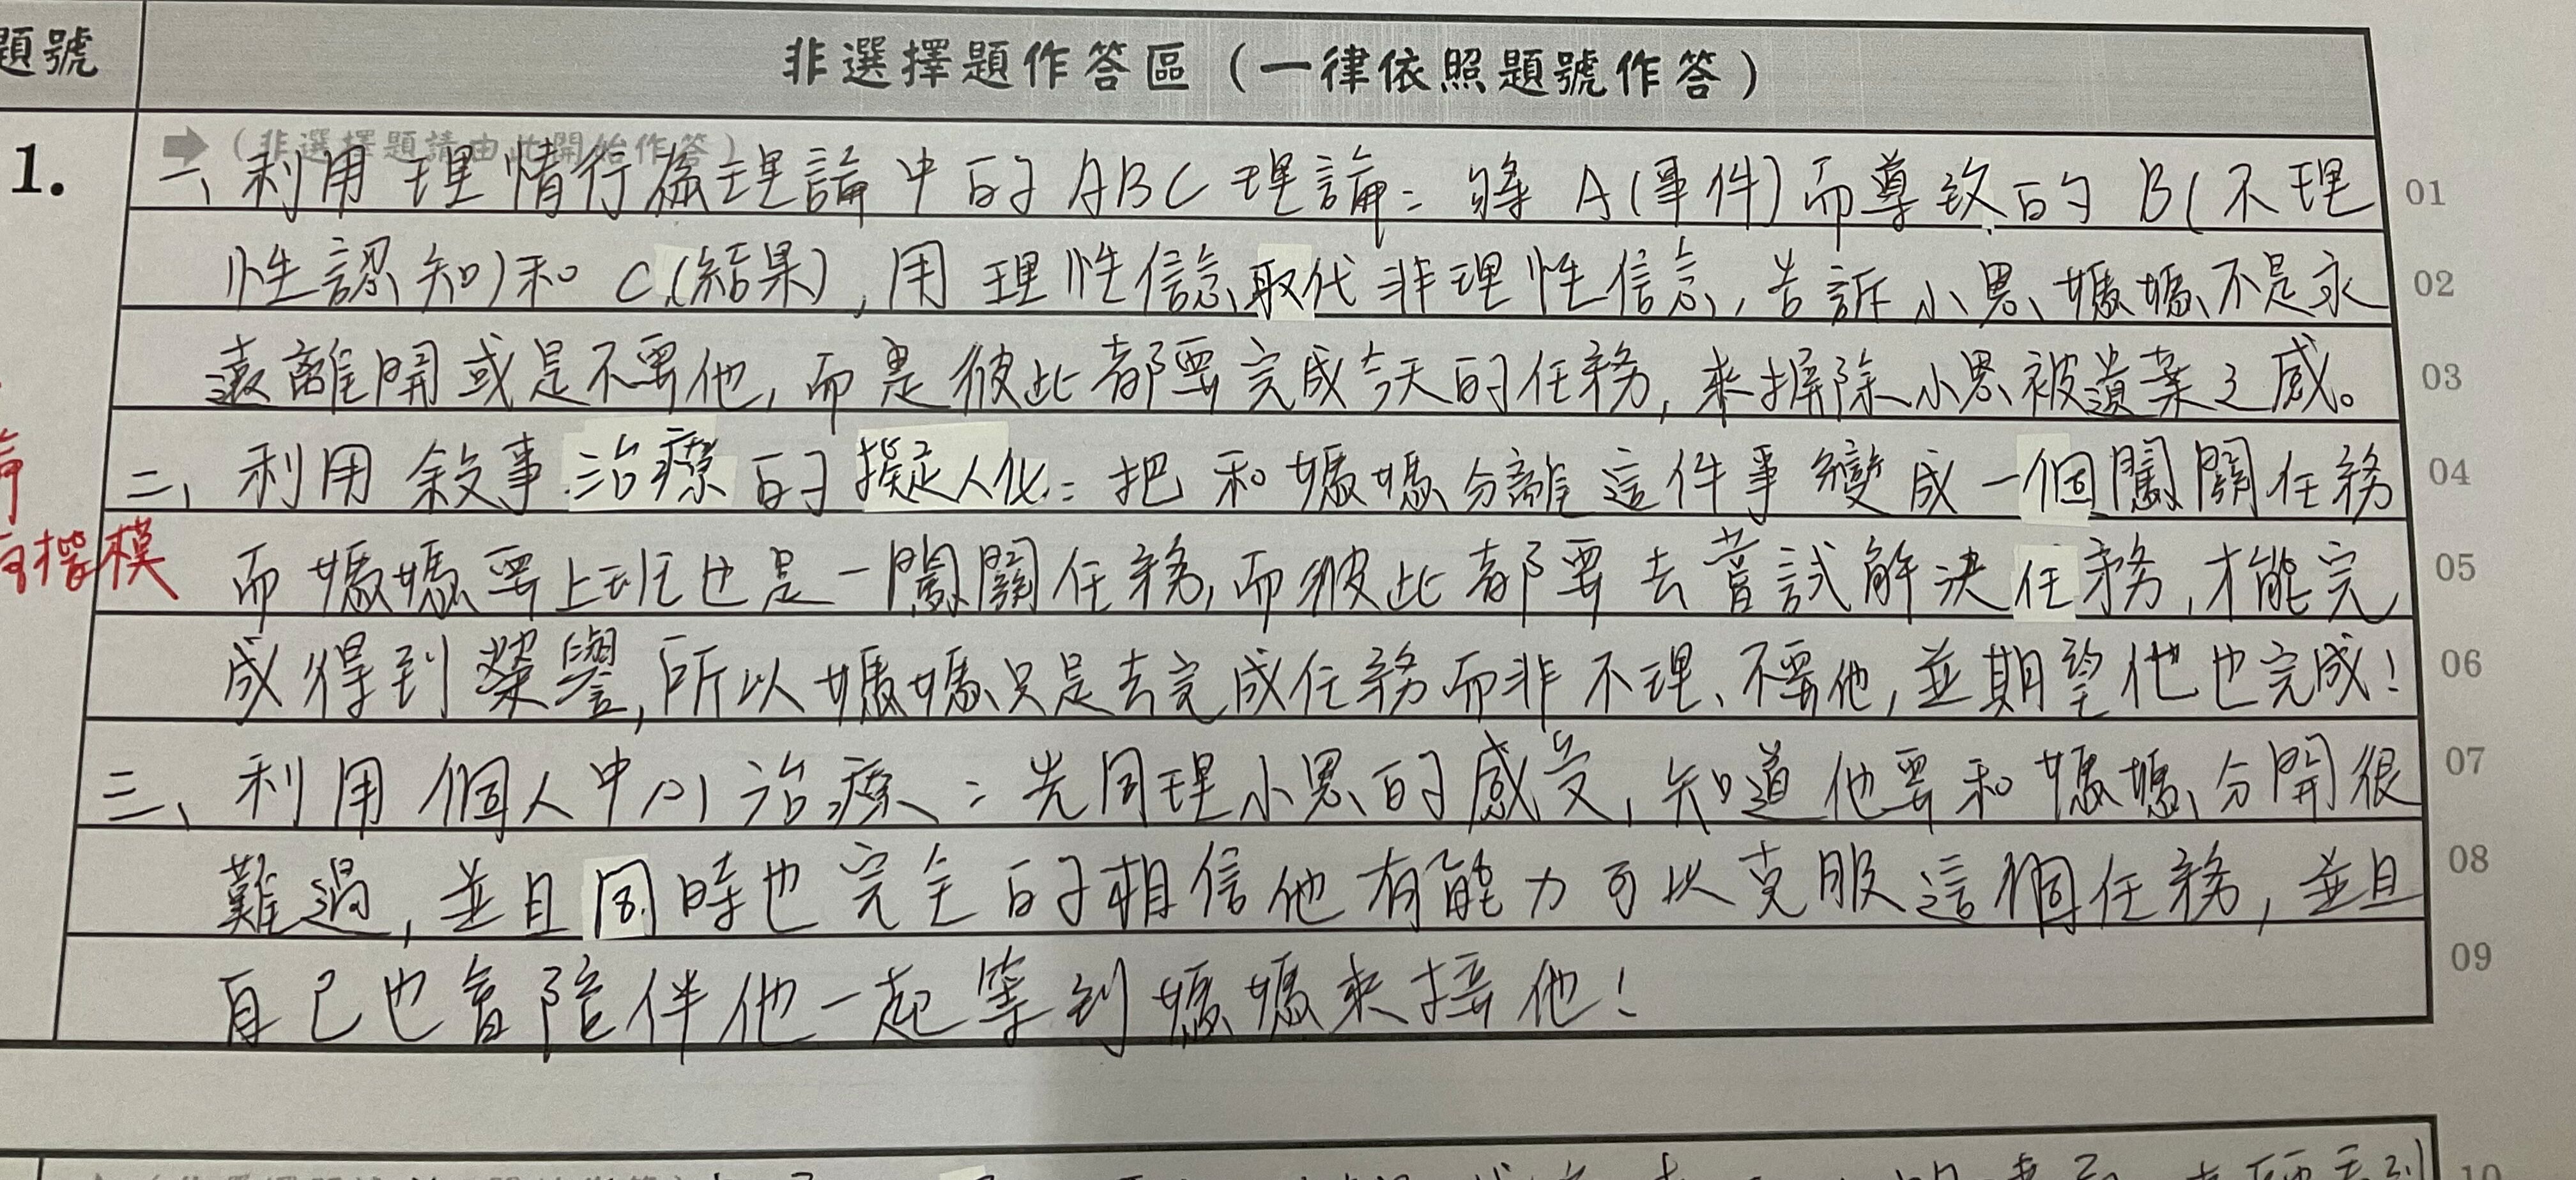 題號 非選擇題作答區（一律依照題號作答）
➡（非選擇題請由此開始作答）
1. 一、利用理情行為理論中的ABC理論：將A(事件)而導致的B(不理 01
性認知)和C(結果)，用理性信念取代非理性信念，告訴小恩媽媽不是永 02
遠離開或是不要他，而是彼此都要完成今天的任務，來掃除小恩被遺棄之感。 03
二、利用敘事治療的擬人化：把和媽媽分離這件事變成一個闖關任務 04
而媽媽要上班也是一闖關任務，而彼此都要去嘗試解決任務，才能完 05
成得到榮譽，所以媽媽只是去完成任務而非不理、不要他，並期望他也完成！ 06
三、利用個人中心治療：先同理小恩的感受，知道他要和媽媽分開很 07
難過，並且同時也完全的相信他有能力可以克服這個任務，並且 08
自己也會陪伴他一起等到媽媽來接他！ 09
10